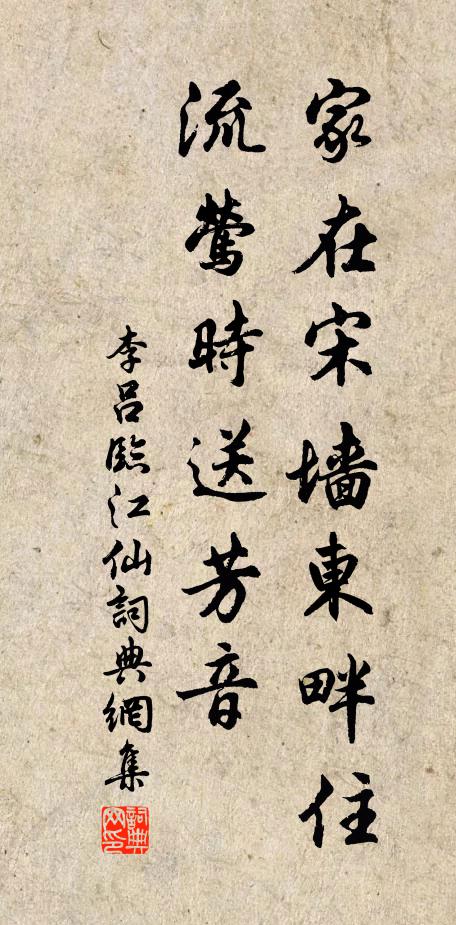 家在宋墙東畔住
流莺時送芳音
李吕臨江仙詞典網集
詞典网印